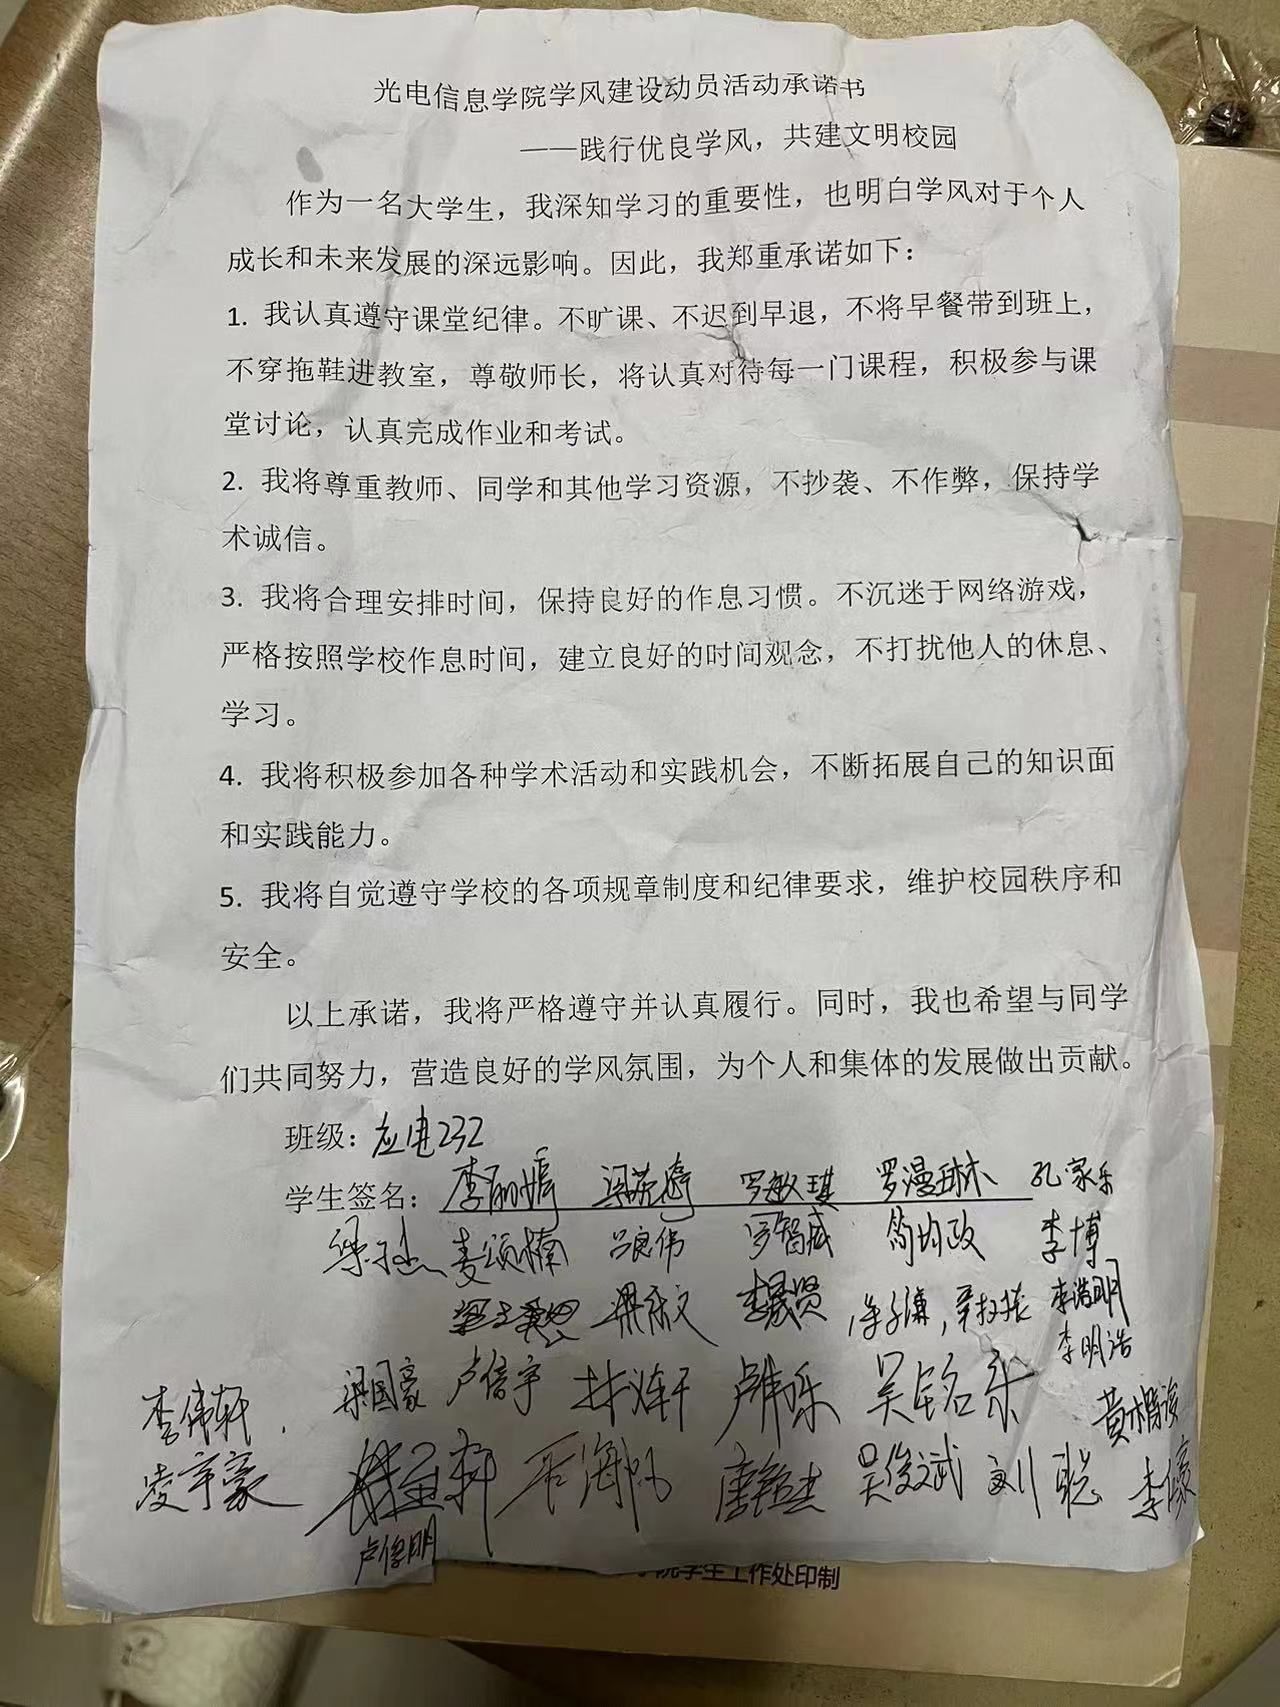 光电信息学院学风建设动员活动承诺书
——践行优良学风，共建文明校园
作为一名大学生，我深知学习的重要性，也明白学风对于个人
成长和未来发展的深远影响。因此，我郑重承诺如下：
1. 我认真遵守课堂纪律。不旷课、不迟到早退，不将早餐带到班上，
不穿拖鞋进教室，尊敬师长，将认真对待每一门课程，积极参与课
堂讨论，认真完成作业和考试。
2. 我将尊重教师、同学和其他学习资源，不抄袭、不作弊，保持学
术诚信。
3. 我将合理安排时间，保持良好的作息习惯。不沉迷于网络游戏，
严格按照学校作息时间，建立良好的时间观念，不打扰他人的休息、
学习。
4. 我将积极参加各种学术活动和实践机会，不断拓展自己的知识面
和实践能力。
5. 我将自觉遵守学校的各项规章制度和纪律要求，维护校园秩序和
安全。
以上承诺，我将严格遵守并认真履行。同时，我也希望与同学
们共同努力，营造良好的学风氛围，为个人和集体的发展做出贡献。
班级：应电232
学生签名： 罗敏琪 罗漫琳 孔家乐
麦颂楠 吕良伟 罗智威 简均政 李博
李晟贤 李浩明
李明浩
梁国豪 卢信宇 吴铭乐
李伟轩
凌宇豪 石海帆 吴俊斌 刘聪 李俊
卢俊明
院学生工作处印制